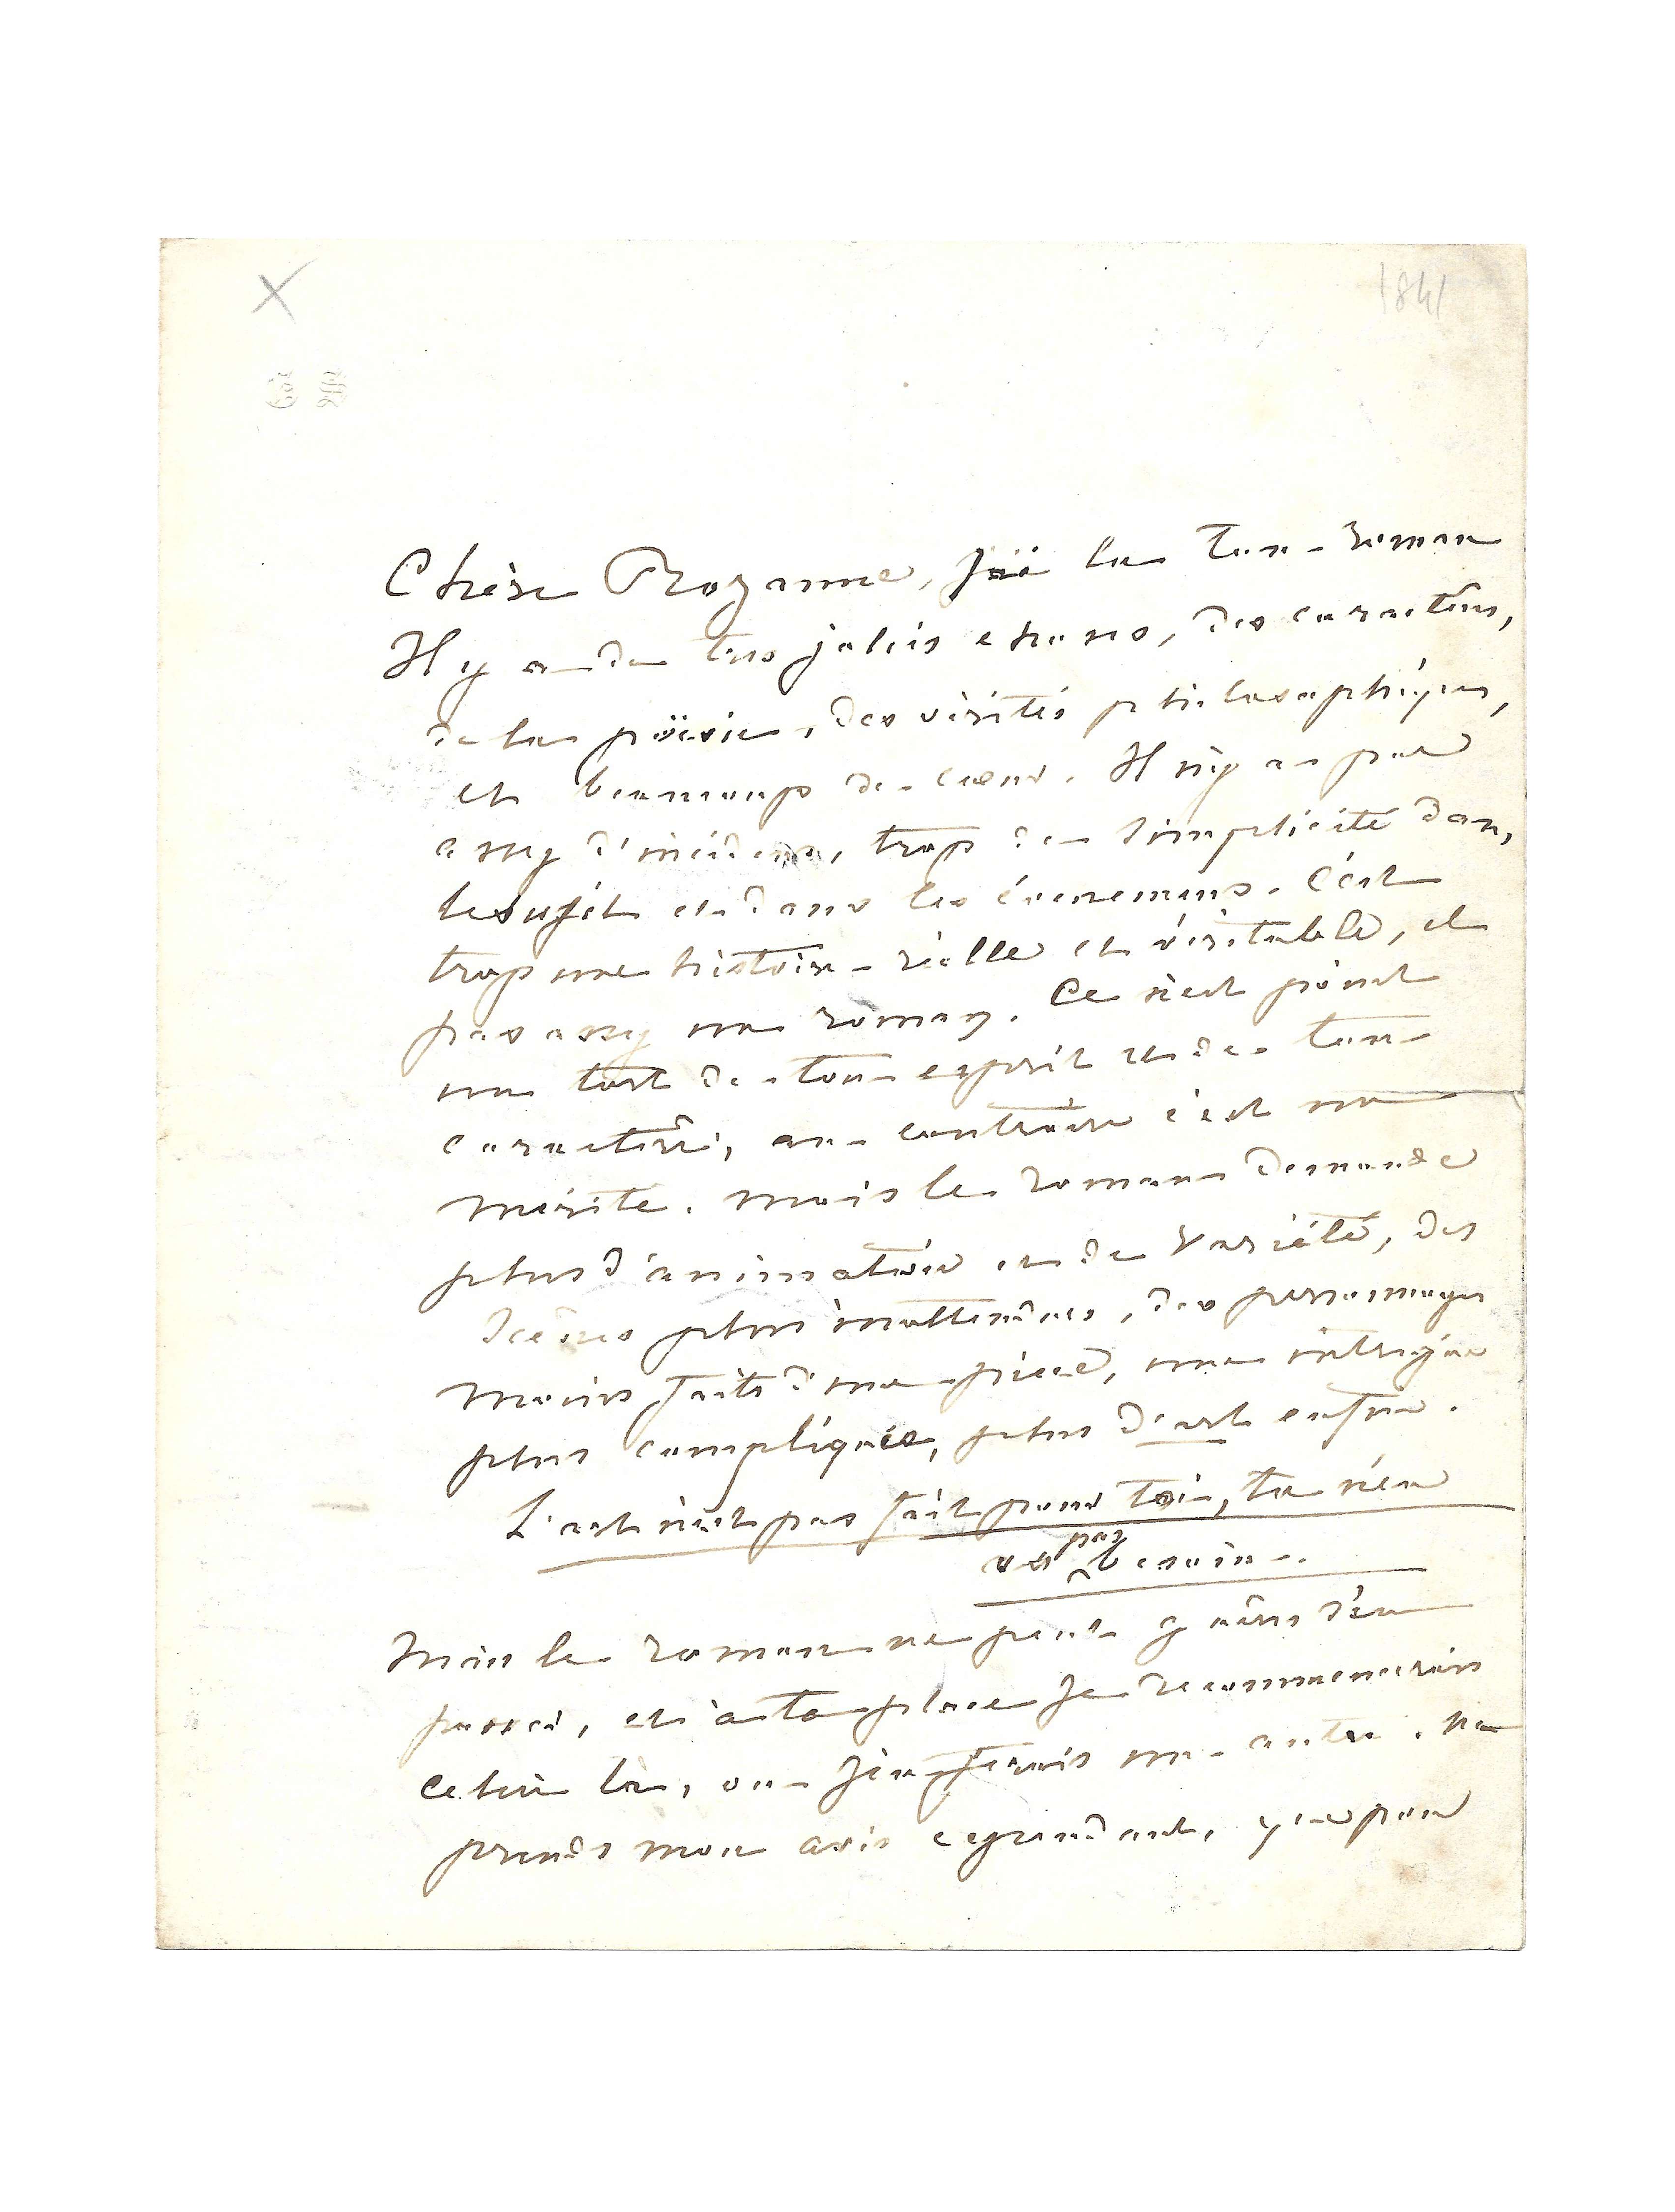 X
1841
G S
Chère Rozanne, j'ai lu ton roman
Il y a de très jolies choses, des caractères,
de la poësie, des vérités philosophiques,
et beaucoup de cœur. Il n'y a pas
assez d'incidens, trop de simplicité dans
le sujet et dans les évenemens. C'est
trop une histoire réelle et véritable, et
pas assez un roman. Ce n'est point
un tort de ton esprit et de ton
caractère, au contraire c'est un
mérite. Mais le roman demande
plus d'animation et de variété, des
scènes plus inattendues, des personnages
moins faits d'une pièce, une intrigue
plus compliquée, plus d'art enfin.
L'art n'est pas fait pour toi, tu n'en
as pas besoin.
Mais le roman ne peut guères s'en
passer, et à ta place je recommencerais
celui là, ou j'en ferais un autre. Ne
prends mon avis cependant, que pour